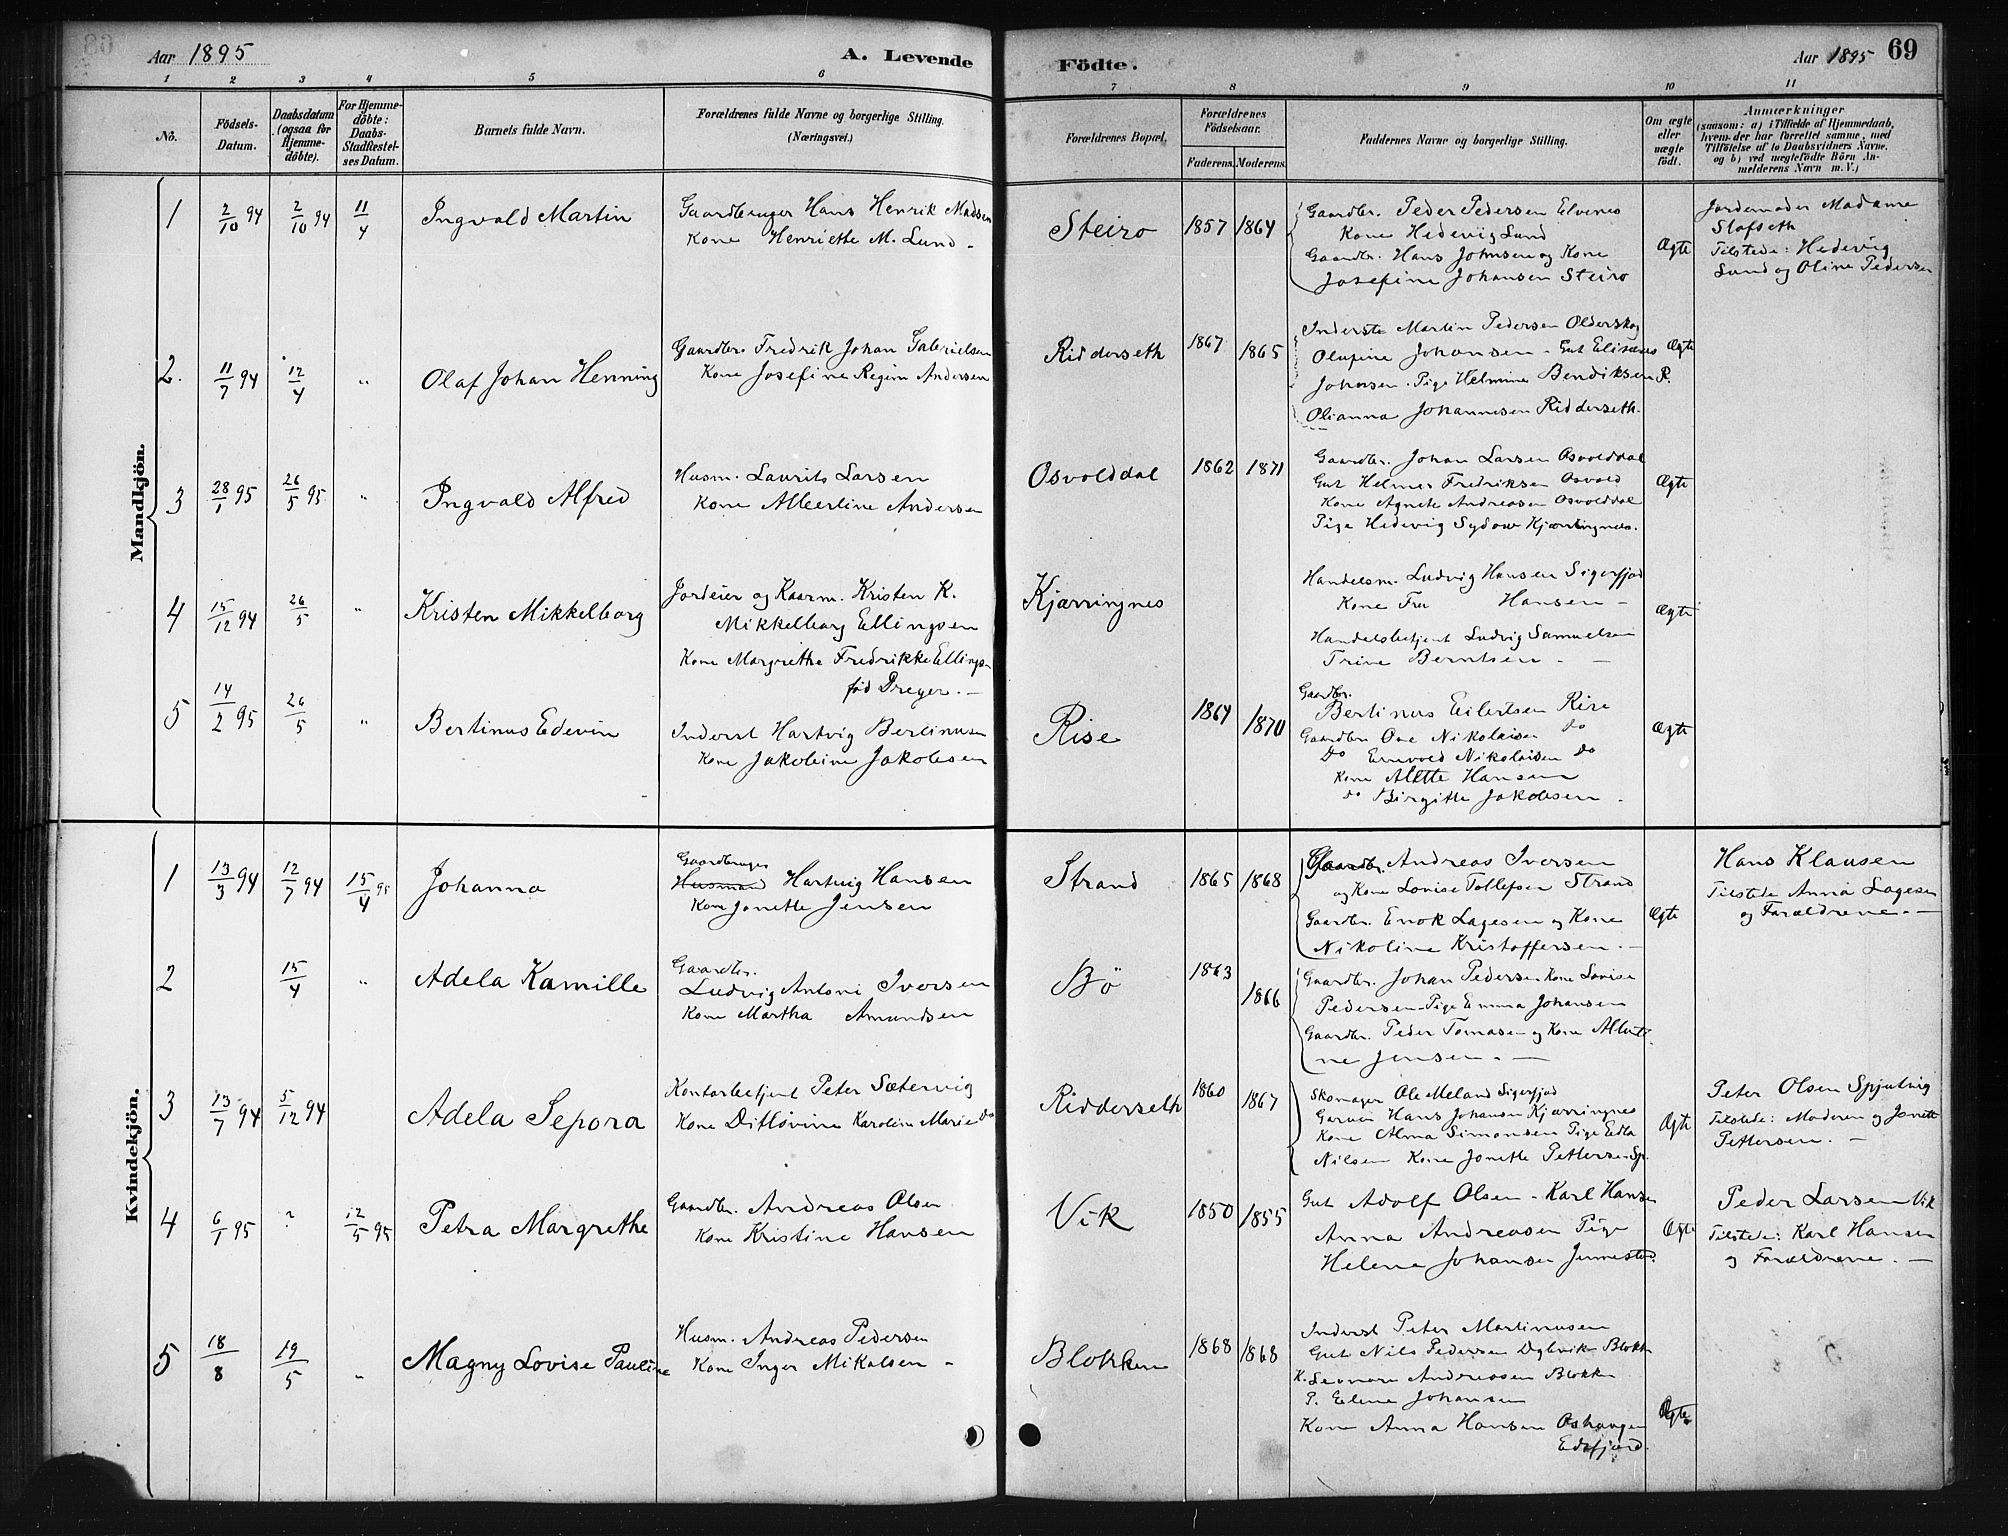 Aar 1895
A. Levende
Födte.
Aar 1895
69
1 2 3 4 5 6 7 8 9 10 11
No.
Födsels-
Datum.
Daabsdatum
(ogsaa for
Hjemme-
döbte).
For Hjemme-
döbte:
Daabs-
Stadfæstel-
ses Datum.
Barnets fulde Navn.
Forældrenes fulde Navne og borgerlige Stilling.
(Næringsvei.)
Forældrenes Bopæl.
Forældrenes
Födselsaar.
Faderens. Moderens.
Faddernes Navne og borgerlige Stilling.
Om ægte
eller
uægte
födt.
Anmærkninger
(saasom: a) i Tilfælde af Hjemmedaab,
hvem der har forrettet samme, med
Tilföielse af to Daabsvidners Navne,
og b) ved uægtefödte Börn An-
melderens Navn m. V.)
Mandkjön.
1 2/10 94 2/10 94 11/4 Ingvald Martin
Gaardbruger Hans Henrik Madsen
Kone Henriette M. Lund -
Steiro 1857 1864
Gaardbr. Peder Pedersen Elvenes
Kone Hedevig Lund
Gaardbr. Hans Johnsen og Kone
Josefine Johansen Steiro
Ægte
Jordemoder Madame
Slofseth
Tilstede: Hedevig
Lund og Oline Pedersen
2. 11/7 94 12/4 " Olaf Johan Henning
Gaardbr. Fredrik Johan Gabrielsen
Kone Josefine Regine Andersen
Ridderseth 1867 1865
Inderste Martin Pedersen Olderskog
Olufine Johansen - Gut Elisæus
Johnsen. Pige Helmine Bendiksen R.
Olianna Johannesen Ridderseth.
Ægte
3 28/1 95 26/5 95 " Ingvald Alfred
Husm. Laurits Larsen
Kone Albertine Andersen
Osvolddal 1862 1871
Gaardbr. Johan Larsen Osvolddal
Gut Helmer Fredriksen Osvold
Kone Agnete Andreasen Osvolddal
Pige Hedevig Sydow Kjærringnes.
Ægte
4 15/12 94 26/5 " Kristen Mikkelborg
Jordeier og Kaarm. Kristen K.
Mikkelborg Ellingsen
Kone Margrethe Fredrikke Ellingsen
föd Dreyer. -
Kjærringnes
Handelsm. Ludvig Hansen Sigerfjod
Kone Fru Hansen -
Handelsbetjent Ludvig Samuelsen
Trine Berntsen. -
Ægte
5 14/2 95 26/5 " Bertinus Edevin
Inderst Hartvig Bertinusen
Kone Jakobine Jakobsen
Rise 1864 1870
Gaardbr.
Bertinus Eilertsen Rise
Gaardbr. Ove Nikolaisen do
Do Enevold Nikolaisen do
Kone Alette Hansen
do Birgitte Jakobsen.
Ægte
Kvindekjön.
1 13/3 94 12/7 94 15/4 95 Johanna
Gaardbruger
Husmand Hartvig Hansen
Kone Jonette Jensen
Strand 1865 1868
Gaardbr. Andreas Iversen
og Kone Lovise Tollefsen Strand
Gaardbr. Enok Lagesen og Kone
Nikoline Kristoffersen. -
Ægte
Hans Klausen
Tilstede Anna Lagesen
og Forældrene. -
2 15/4 " Adela Kamille
Gaardbr.
Ludvig Antoni Iversen
Kone Martha Amundsen
Bö 1863 1866
Gaardbr. Johan Pedersen Kone Lovise
Pedersen - Pige Emma Johansen
Gaardbr. Peder Tomasen og Kone Alberti-
ne Jensen. -
3 13/7 94 5/12 94 Adela Sepora
Kontorbetjent Peter Sætervig
Kone Ditlövine Karoline Marie do
Ridderseth 1860 1867
Skomager Ole Meland Sigerfjod
Garver Hans Johansen Kjærringnes
Kone Alma Simonsen Pige Edla
Nilsen Kone Jonette Pettersen Sp.
Ægte
Peter Olsen Spjutvig
Tilstede: Moderen og Jonette
Pettersen. -
4 6/1 95 ? 12/5 95 Petra Margrethe
Gaardbr. Andreas Olsen
Kone Kristine Hansen
Vik 1850 1855
Gut Adolf Olsen - Karl Hansen
Anna Andreasen Pige
Helene Johansen Jennestad.
Ægte
Peder Larsen Vik
Tilstede: Karl Hansen
og Forældrene. -
5 18/8 19/5 " Magny Lovise Pauline
Husm. Andreas Pedersen
Kone Inger Mikalsen -
Blokken 1868 1868
Inderst Peter Martinusen
Gut Nils Pedersen Dybvik Blokk
K. Leonore Andreassen Blokken
P. Elene Johansen
Kone Anna Hansen
Edsfjord.
Ægte